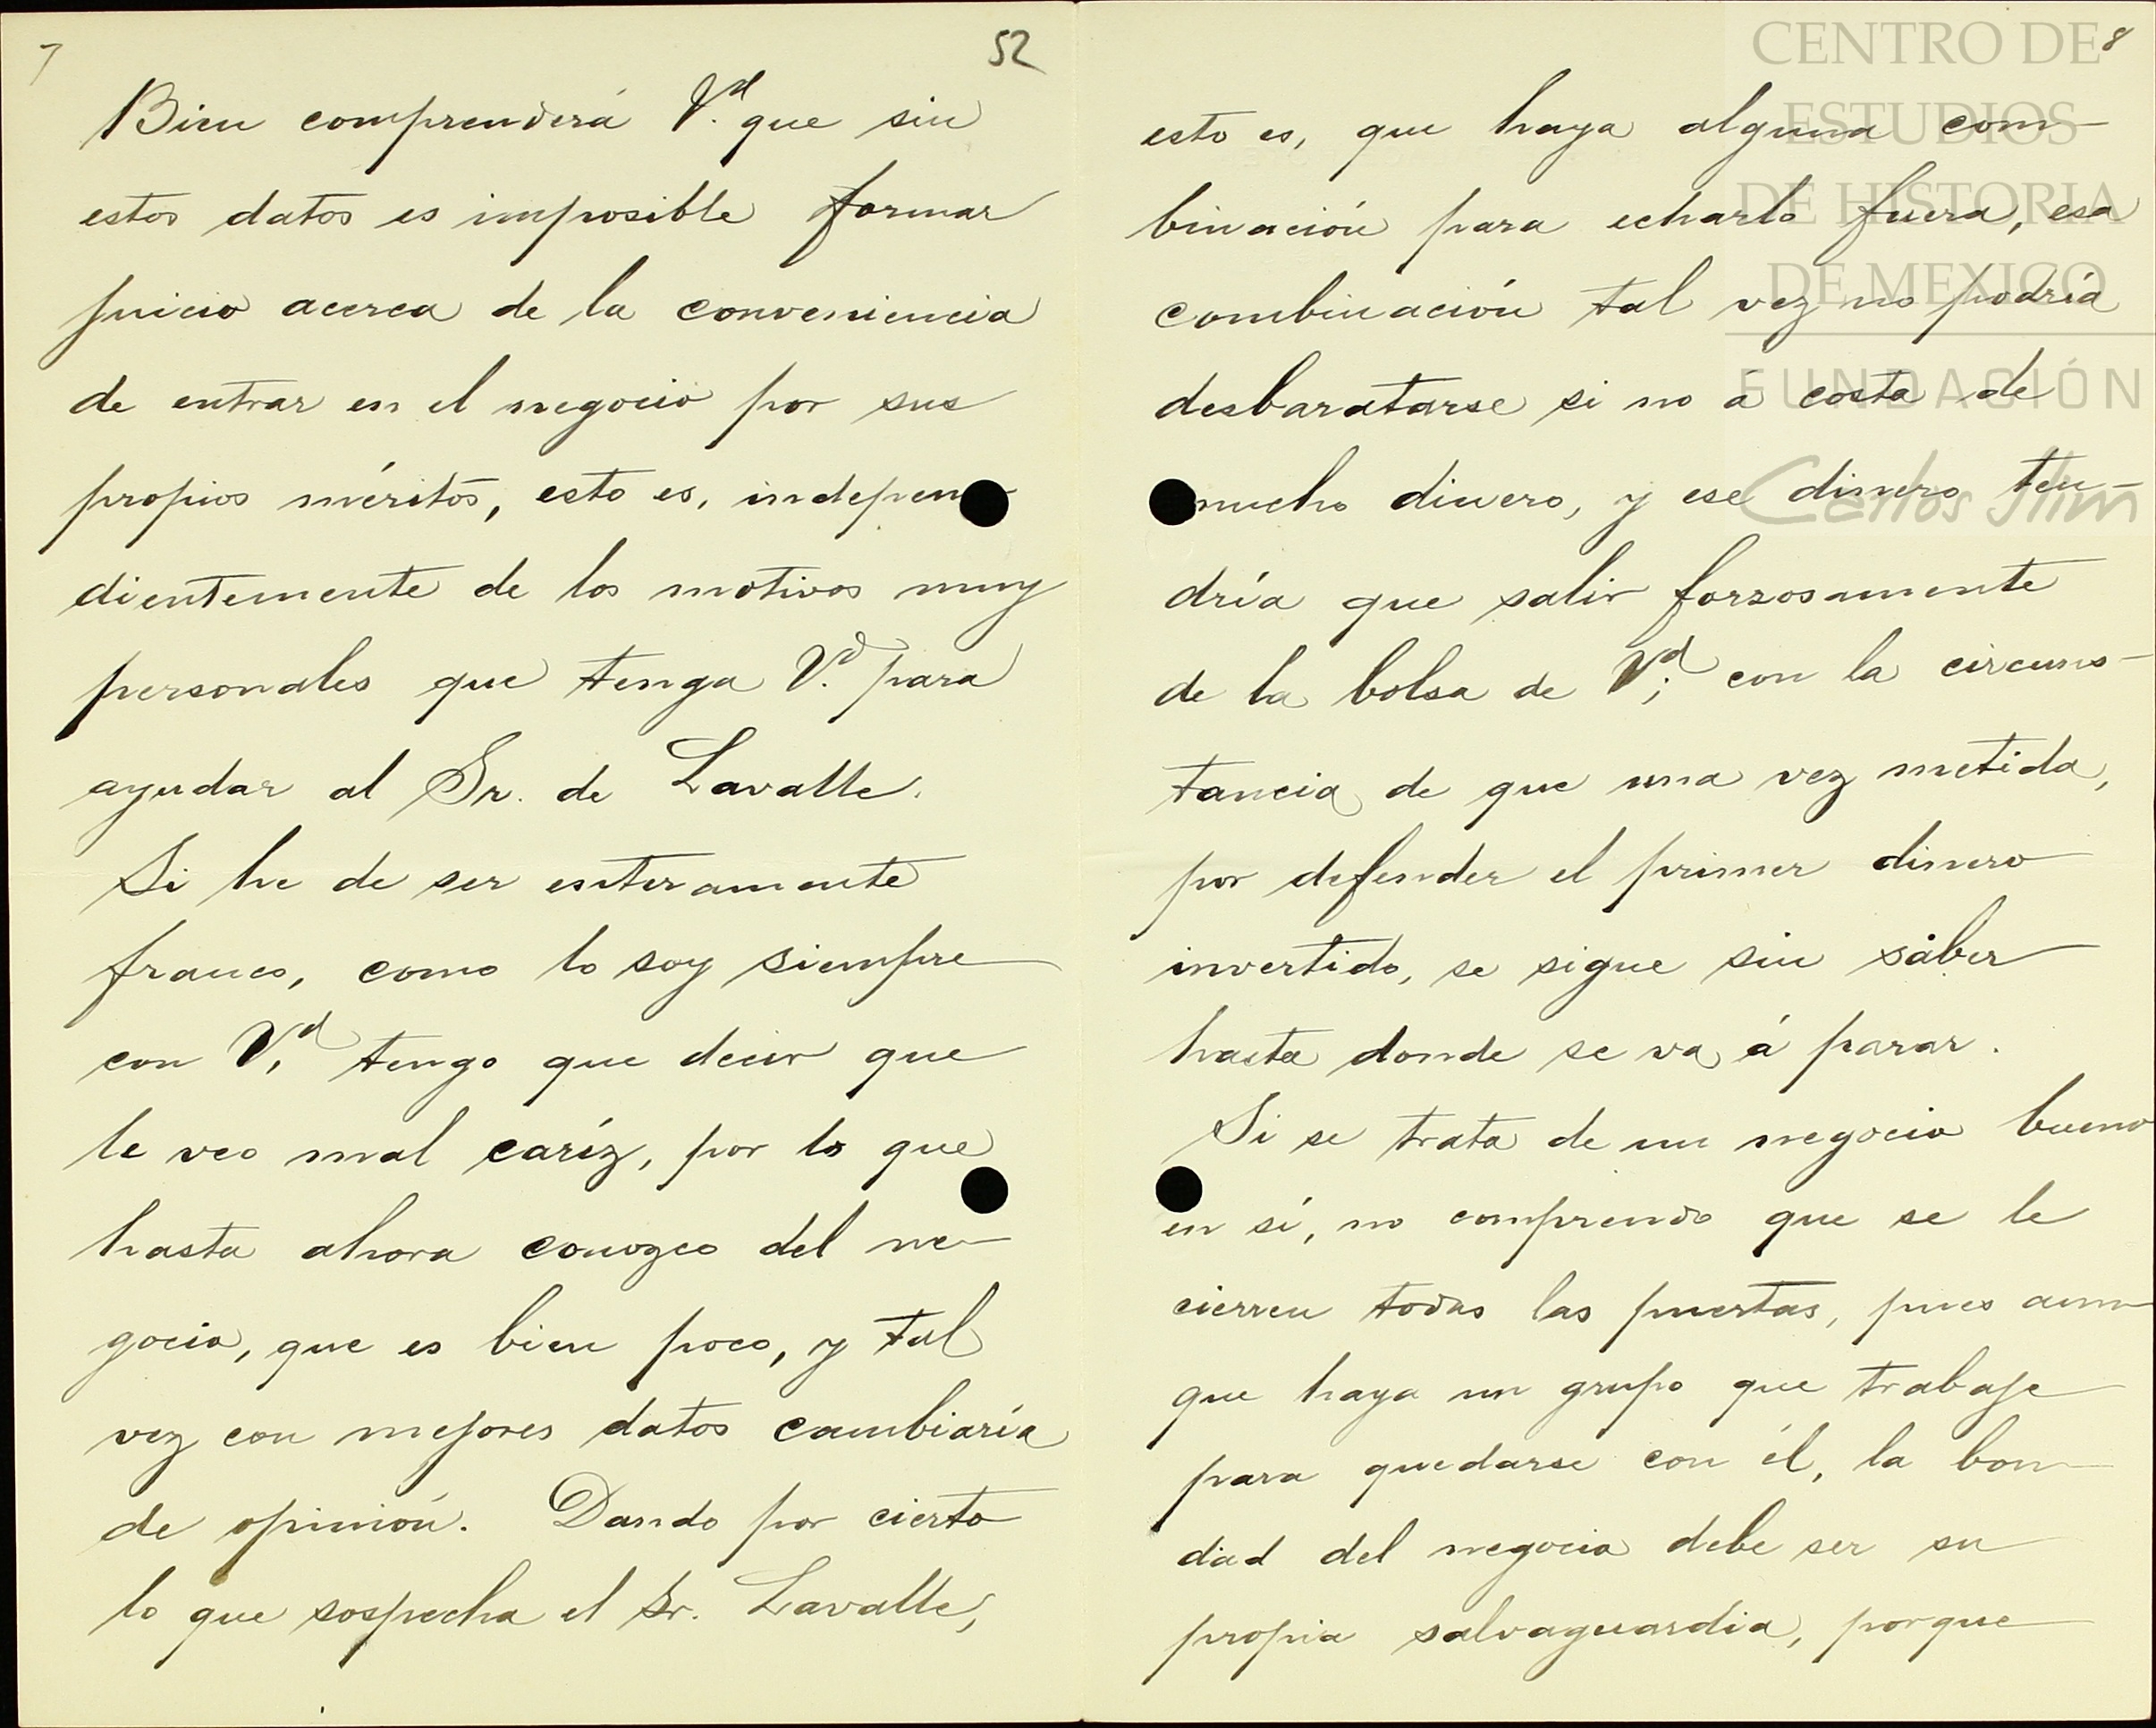 7
52
Bien comprenderá V.d que sin
estos datos es imposible formar
juicio acerca de la conveniencia
de entrar en el negocio por sus
propios méritos, esto es, indepen
dientemente de los motivos muy
personales que tenga V.d para
ayudar al Sr. de Lavalle.
Si he de ser enteramente
franco, como lo soy siempre
con V.d tengo que decir que
le veo mal caríz, por lo que
hasta ahora conozco del ne-
gocio, que es bien poco, y tal
vez con mejores datos cambiaría
de opinión. Dando por cierto
lo que sospecha el Sr. Lavalle,
8
esto es, que haya alguna com-
binación para echarlo fuera, esa
combinación tal vez no podría
desbaratarse si no á costa de
mucho dinero, y ese dinero ten-
dría que salir forzosamente
de la bolsa de V.d; con la circuns-
tancia de que una vez metida,
por defender el primer dinero
invertido, se sigue sin saber
hasta donde se va á parar.
Si se trata de un negocio bueno
en sí, no comprendo que se le
cierren todas las puertas, pues aun
que haya un grupo que trabaje
para quedarse con él, la bon-
dad del negocio debe ser su
propia salvaguardia, porque
CENTRO DE
ESTUDIOS
DE HISTORIA
DE MEXICO
FUNDACIÓN
Carlos Slim